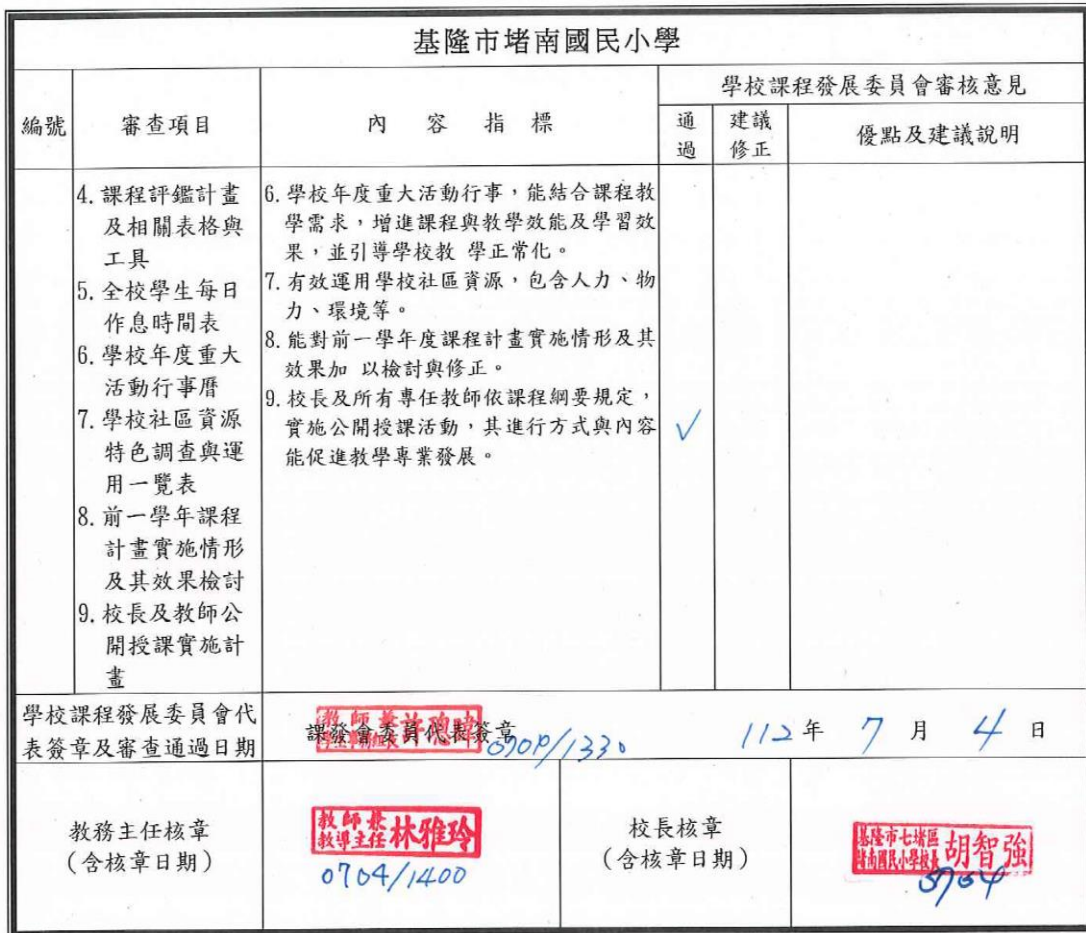 基隆市堵南國民小學
編號 審查項目 內 容 指 標 學校課程發展委員會審核意見
通過 建議修正 優點及建議說明
4.課程評鑑計畫
及相關表格與
工具
5.全校學生每日
作息時間表
6.學校年度重大
活動行事曆
7.學校社區資源
特色調查與運
用一覽表
8.前一學年課程
計畫實施情形
及其效果檢討
9.校長及教師公
開授課實施計
畫
6.學校年度重大活動行事,能結合課程教
學需求,增進課程與教學效能及學習效
果,並引導學校教 學正常化。
7.有效運用學校社區資源,包含人力、物
力、環境等。
8.能對前一學年度課程計畫實施情形及其
效果加 以檢討與修正。
9.校長及所有專任教師依課程綱要規定,
實施公開授課活動,其進行方式與內容
能促進教學專業發展。
✓
學校課程發展委員會代
表簽章及審查通過日期
課發會委員代表簽章
教師兼
許聰暐
/1330
112年 7 月 4 日
教務主任核章
(含核章日期)
教師兼
教導主任 林雅玲
0704/1400
校長核章
(含核章日期)
基隆市七堵區
堵南國民小學校長 胡智強
0704